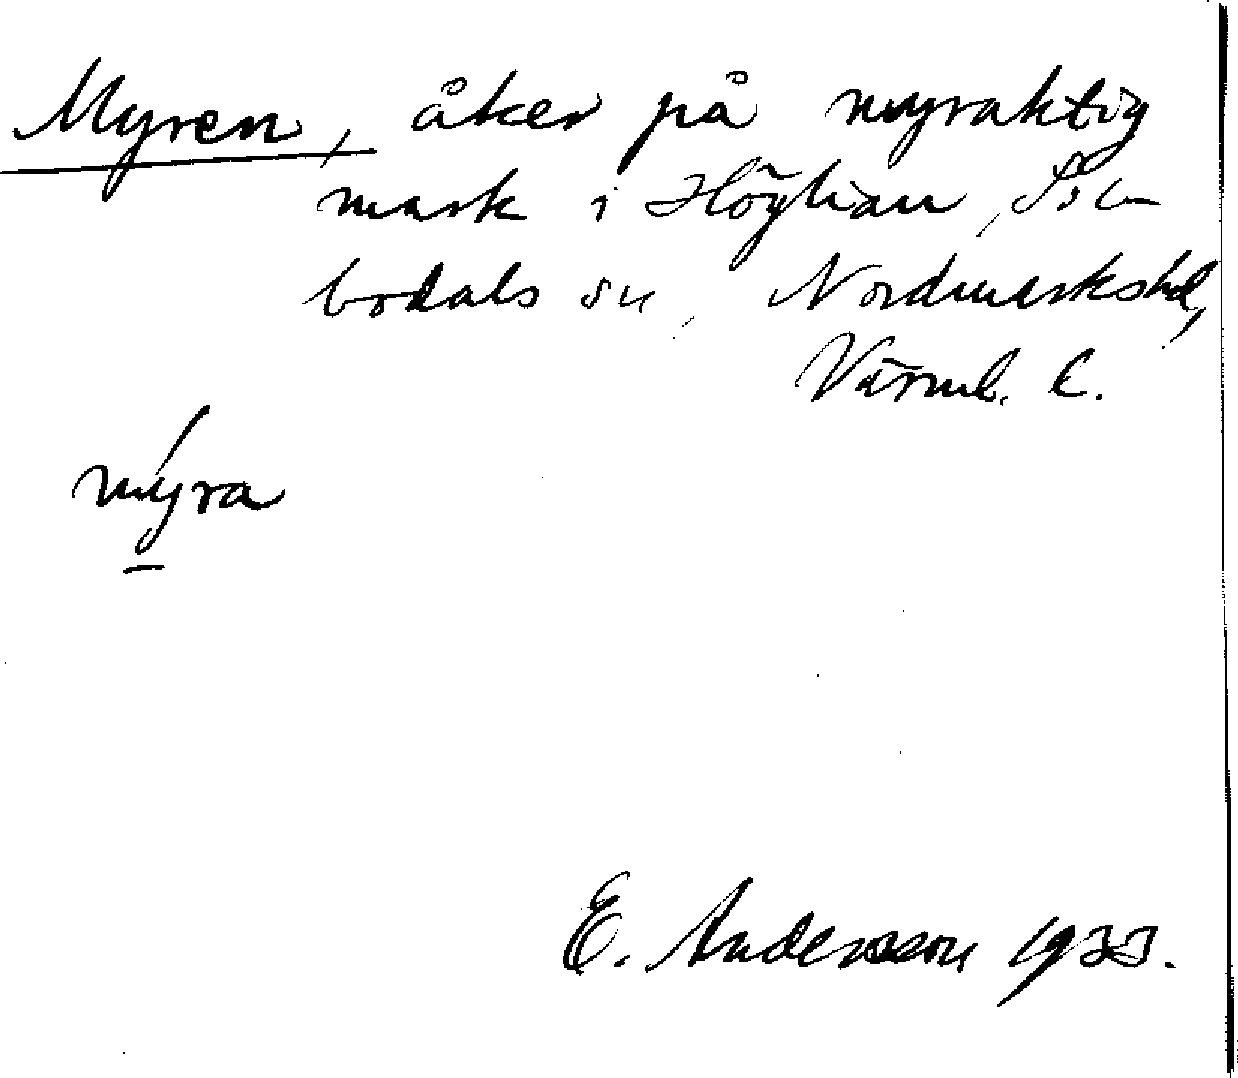 Myren, åker på myraktig
mark i Höglian, Silbodals
sn, Nordmarks hd,
Värml. l.
mýra
E. Andersson 1933.